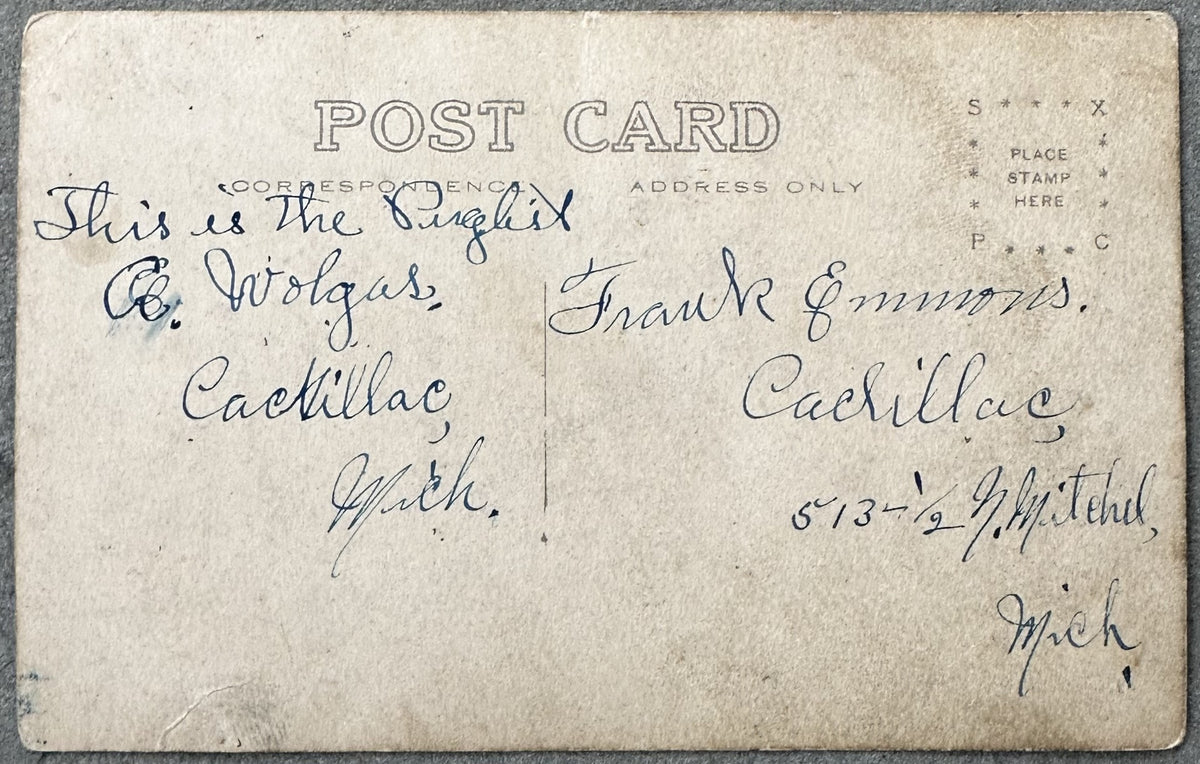 POST CARD
CORRESPONDENCE
ADDRESS ONLY
S X
PLACE
STAMP
HERE
P C
This is the Pugilist
Wolgas.
Cadillac,
Mich.
Frank Emmons.
Cadillac,
513-1/2 N. Mitchel,
Mich.